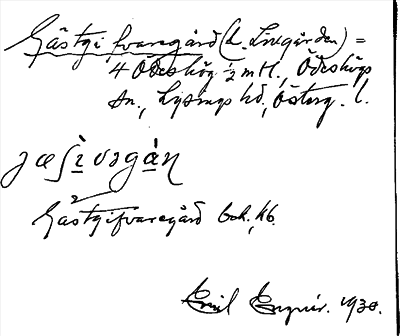 Gästgifvaregård (L. Lindgården) =
4 Ödeshög ½ mtl., Ödeshögs
sn., Lysings hd, Österg. l.
Gästgifvaregård bok., kb.
Emil Enqvir. 1930.